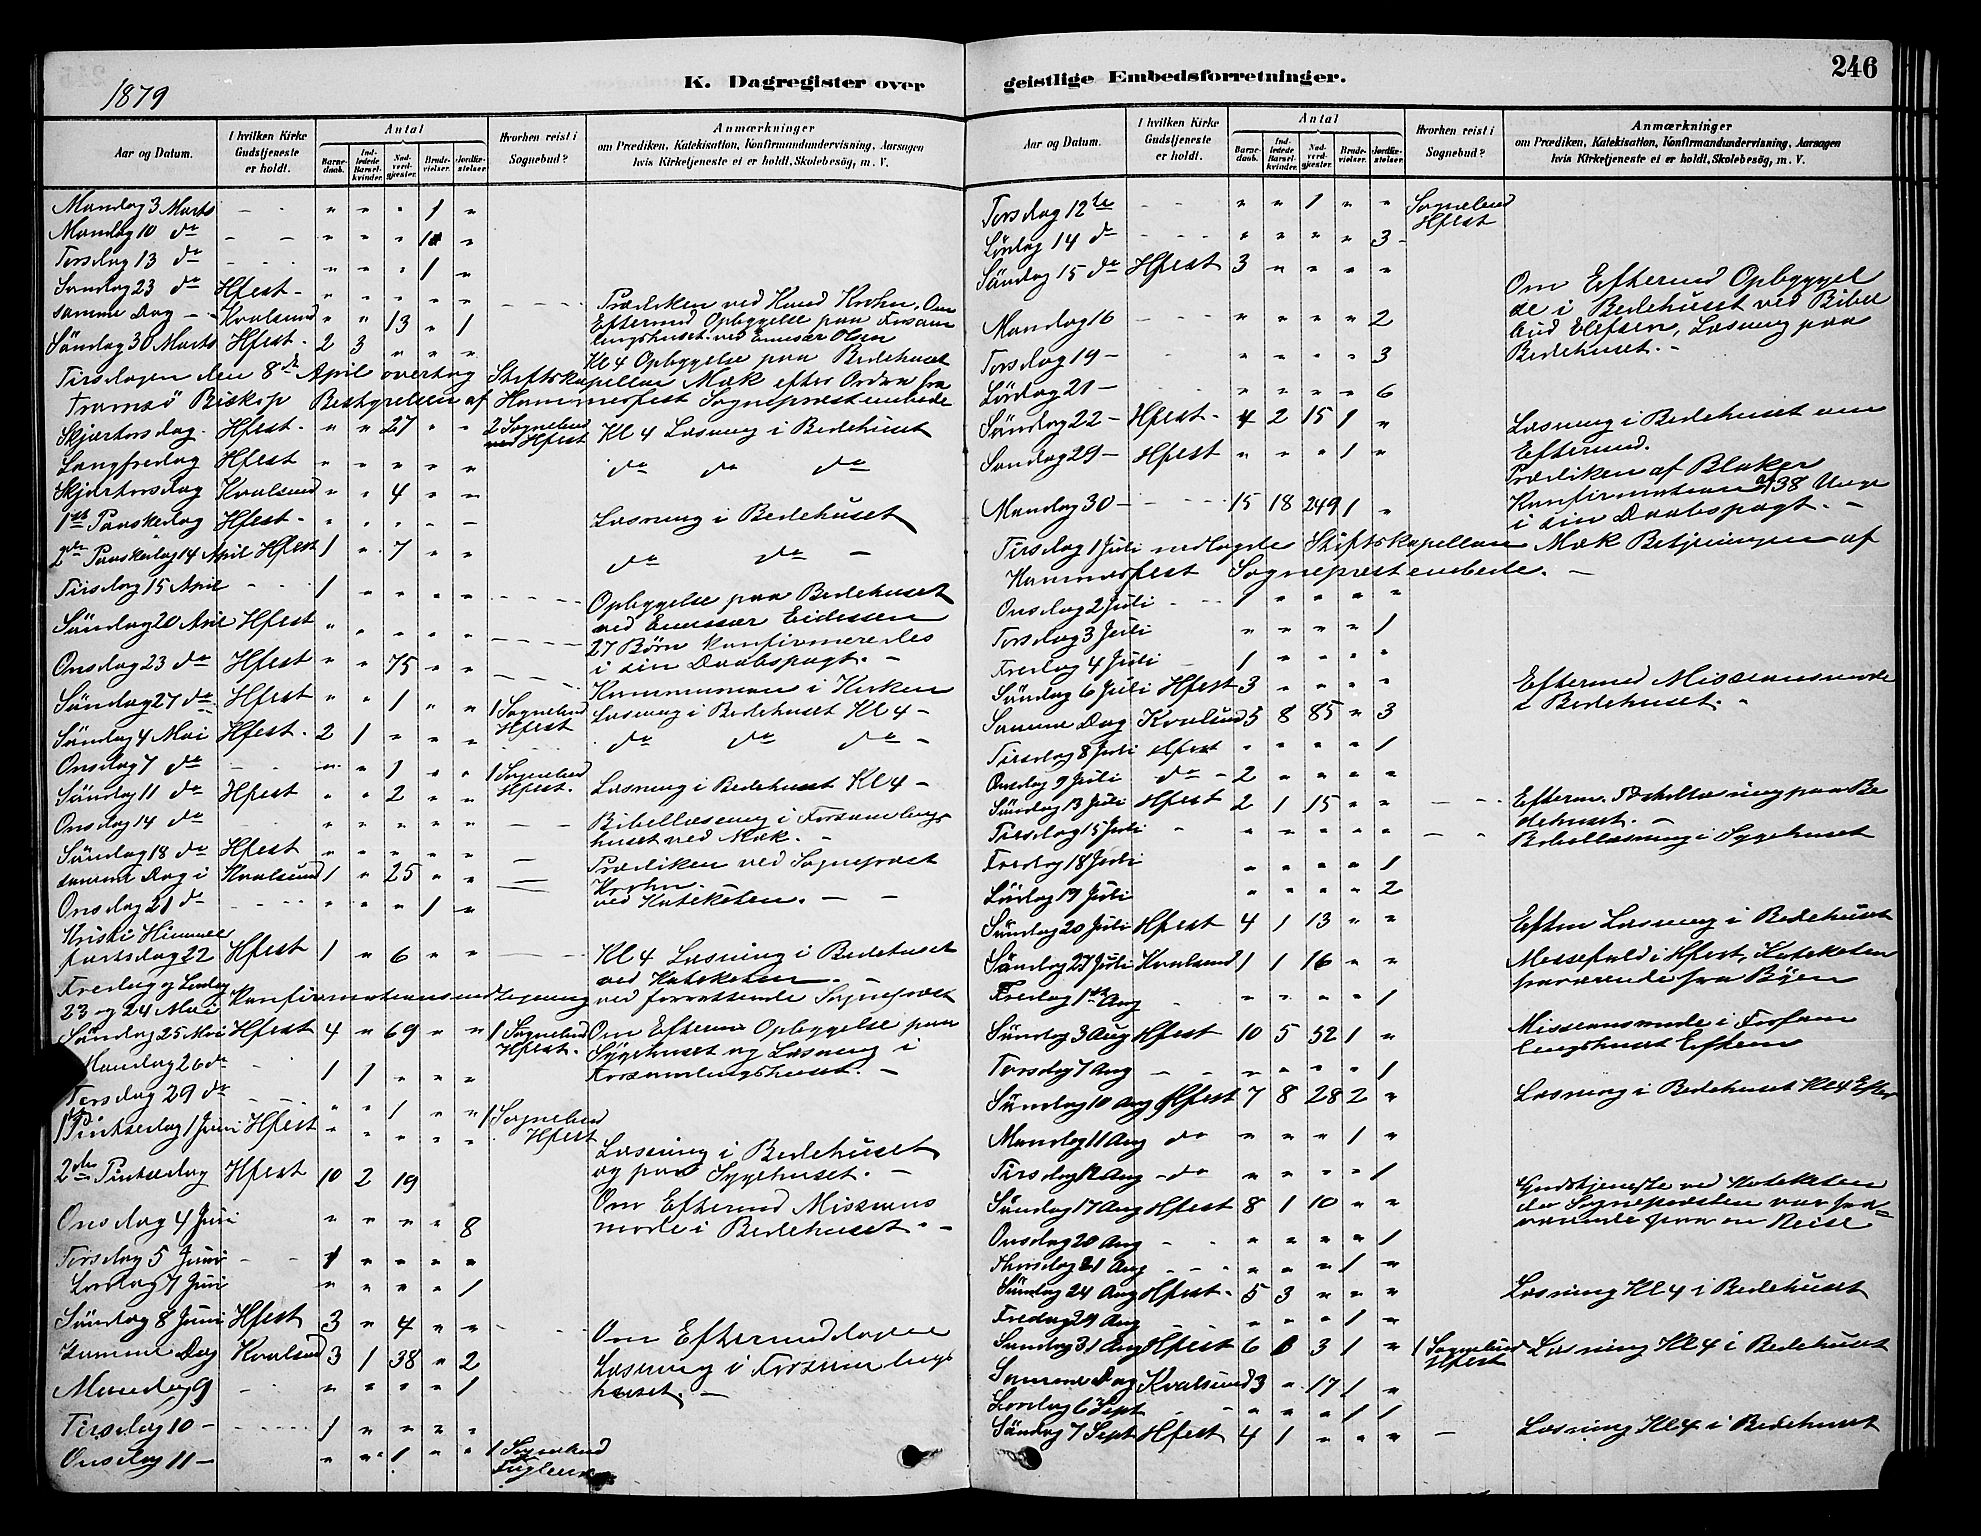 1879
K. Dagregister over
Aar og Datum. I hvilken Kirke Gudstjeneste er holdt. Antal Barnedaab. Indledede Barselkvinder. Nadverdgjester. Brudevielser. Jordfæstelser. Hvorhen reist i Sognebud? Anmærkninger om Prædiken, Katekisation, Konfirmandundervisning, Aarsagen hvis Kirketjeneste ei er holdt, Skolebesög, m. V.
Mandag 3 Marts - - " " " 1 "
Mandag 10 do - - " " " 1 "
Torsdag 13 do " " " 1 "
Søndag 23 do Hfest - " " " " " Prædiken ved Krohn. Om
samme Dag - Kvalsund " " 13 " 1 Eftermid Opbyggelse paa Forsam
Søndag 30 Marts Hfest - 2 3 " " " lingshuset ved Emissær Olsen
Kl 4 Opbyggelse paa Bedehuset
Tirsdagen den 8de April overtog Stiftskapellan Mæk efter Ordre fra
Tromsø Biskop Bestyrelsen af Hammerfest Sognepræstembede
Skjærtorsdag. Hfest - " " 27 " " 2 Sognebud Hfest Kl 4 Læsning i Bedehuset
Langfredag Hfest " " " " " do do do
Skjærtorsdag Kvalsund " " 4 " "
1ste Paaskedag Hfest - " " " " " Læsning i Bedehuset
2den Paaskedag 14 April Hfest 1 " 7 " " do do -
Tirsdag 15 April - - 1 " " " "
Søndag 20 April Hfest " " " " " Opbyggelse paa Bedehuset
ved Emissær Eidessen
Onsdag 23 do Hfest " " 75 " " 27 Børn konfirmeredes
i sin Daabspagt. -
Søndag 27 do Hfest " " 1 " " 1 Sognebud Hfest Kommunion i Kirken
Læsning i Bedehuset Kl 4 -
Søndag 4 Mai Hfest - 2 1 " " " do do do -
Onsdag 7 do - " " 1 " " 1 Sognebud Hfest.
Søndag 11 do Hfest " " 2 " " Læsning i Bedehuset Kl 4 -
Onsdag 14 do - " " " " " Bibellæsning i Forsamlings
Søndag 18 do Hfest " " " " " huset ved Mæk. -
samme Dag i Kvalsund 1 " 25 " " Prædiken ved Sognepræst
Krohn.
Onsdag 21 do " " " 1 " ved Kateketen. - -
Kristi Himmel
fartsdag 22 Hfest 1 " 6 " " Kl 4 Læsning i Bedehuset
ved Kateketen. -
Fredag og Lørdag
23 og 24 Mai Konfirmationsundervisning ved forrettende Sognepræst
Søndag 25 Mai Hfest 4 " 69 " " 1 Sognebud Hfest. Om Efterm Opbyggelse paa
Mandag 26 do - 1 1 " " " Sygehuset og Læsning i
Forsamlingshuset. -
Torsdag 29 do " " 1 " " 1 Sognebud Hfest
1ste Pintsedag 1 Juni Hfest " " " " " Læsning i Bedehuset
2den Pintsedag Hfest 10 2 19 og paa Sygehuset. -
Onsdag 4 Juni " " " " 8 Om Eftermid Missions
møde i Bedehuset. -
Torsdag 5 Juni - 1 " " " "
Lørdag 7 Juni " " " " 1
Søndag 8 Juni Hfest 3 " 4 " " Om Eftermiddagen
Samme Dag Kvalsund 3 1 38 " 2 Læsning i Forsamlings
Mandag 9 " " " " 1 huset. -
Tirsdag 10 - 1 " " " "
Onsdag 11 - " " 1 " " 1 Sognebud Fuglenes
geistlige Embedsforretninger. 246
Aar og Datum. I hvilken Kirke Gudstjeneste er holdt. Antal Barnedaab. Indledede Barselkvinder. Nadverdgjester. Brudevielser. Jordfæstelser. Hvorhen reist i Sognebud? Anmærkninger om Prædiken, Katekisation, Konfirmandundervisning, Aarsagen hvis Kirketjeneste ei er holdt, Skolebesög, m. V.
Torsdag 12te - - " " 1 " " Sognebud Hfest
Lørdag 14 do - - " " " " 3
Søndag 15 do Hfest 3 " " " " Om Eftermid Opbyggel
se i Bedehuset ved Bibel
Mandag 16 - " " " " 2 bud Olefsen, Læsning paa
Torsdag 19 - " " " " 3 Bedehuset. -
Lørdag 21 - " " " " 6
Søndag 22 - Hfest - 4 2 15 1 " Læsning i Bedehuset om
Eftermid.
Søndag 29 - Hfest " " " 1 " Prædiken af Blaker
Mandag 30 - 15 18 249 1 " Konfirmation af 138 Unge
i sin Daabspagt. -
Tirsdag 1 Juli nedlagdes Stiftskapellan Mæk Betjeningen af
Hammerfest Sognepræstembede. -
Onsdag 2 Juli - 1 " " " "
Torsdag 3 Juli " " " " 1
Fredag 4 Juli - 1 " " " "
Søndag 6 Juli Hfest 3 " " " " Eftermid Missionsmøde
Samme Dag Kvalsund 3 8 85 " 3 i Bedehuset. -
Tirsdag 8 Juli Hfest " " " " 1
Onsdag 9 Juli do - 2 " " " "
Søndag 13 Juli Hfest 2 1 15 " " - - Efterm. læsning paa Be
dehuset. -
Tirsdag 15 Juli " " " " " - " Bibellæsning i Sygehuset
Fredag 18 Juli " " " " 1
Lørdag 19 Juli " " " " 2
Søndag 20 Juli Hfest 4 1 13 " " Efterm Læsning i Bedehuset
Søndag 27 Juli Kvalsund 1 1 16 " " Messefald i Hfest, Kateketen
Fredag 1ste Aug " " " " 1 fraværende fra Byen
Søndag 3 Aug Hfest 10 5 52 1 " Missionsmøde i Forsam
lingshuset Efterm
Torsdag 7 Aug - - " " " " 1
Søndag 10 Aug Hfest 7 8 28 2 " Læsning i Bedehuset Kl 4 Efter
Mandag 11 Aug do " " " 1 "
Tirsdag 12 Aug - do " " " " 1
Søndag 17 Aug Hfest 8 1 10 " " Gudstjeneste ved Kateketen
da Sognepræsten var fra-
Onsdag 20 Aug " " " " 1 værende paa en Reise
Thorsdag 21 Aug " " " 1 "
Søndag 24 Aug Hfest - 5 3 " " " Læsning Kl 4 i Bedehuset
Fredag 29 Aug " " " 1 "
Søndag 31 Aug Hfest 6 0 3 1 " 1 Sognebud Hfest Læsning Kl 4 i Bedehuset
Samme Dag Kvalsund 3 " 17 1 "
Lørdag 6 Sept " " " 1 1
Søndag 7 Sept Hfest 4 1 " " " - Læsning Kl 4 i Bedehuset